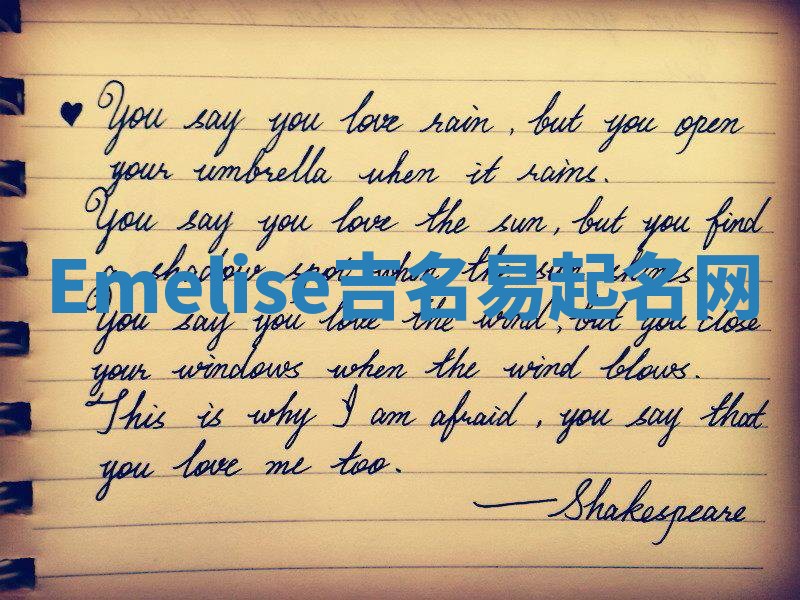 You say you love rain, but you open
your umbrella when it rains.
You say you love the sun, but you find
a shadow spot when the sun shines
Emelise吉名易起名网
You say you love the wind, but you close
your windows when the wind blows.
This is why I am afraid, you say that
you love me too.
—Shakespeare